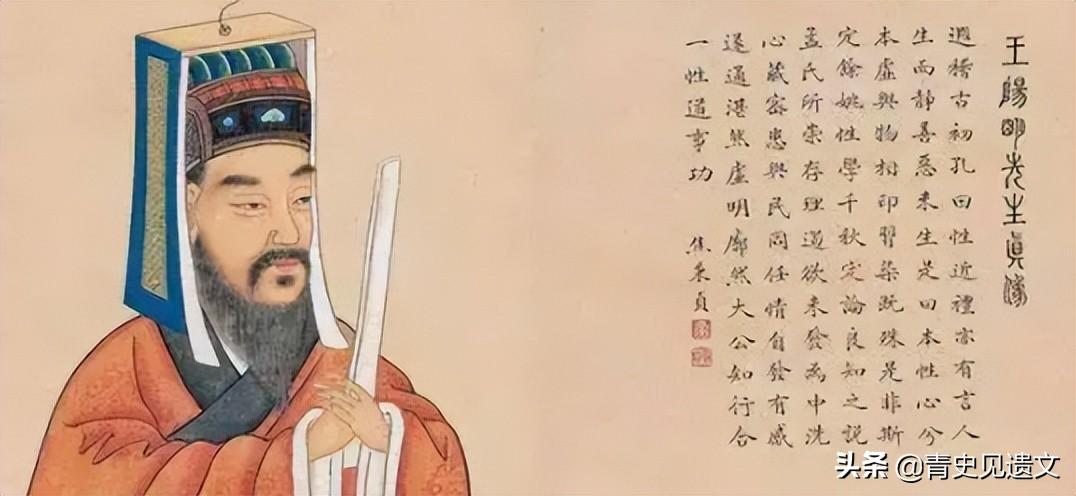 王陽明先生眞像
遐稽古初孔曰性近禮亦有言人
生而靜善惡未生是曰本性心兮
本虛與物相印習染既殊是非斯
定餘姚性學千秋定論良知之說
孟氏所崇存理遏欲未發為中洗
心藏密患與民同任情自發有感
遂通湛然虛明廓然大公知行合
一性道事功
焦秉貞
头条 @青史见遗文